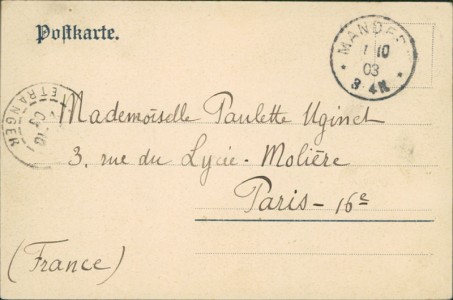 Postkarte.
MANDEL
1 10
03
3-4N.
ETRANGER
Mademoiselle Paulette Uginet
3, rue du Lycée-Molière
Paris-16e
(France)